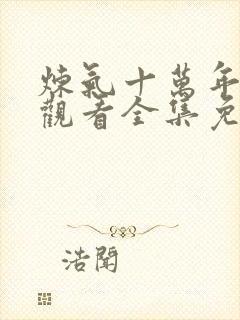 煉氣十萬年
觀看全集免
浩聞